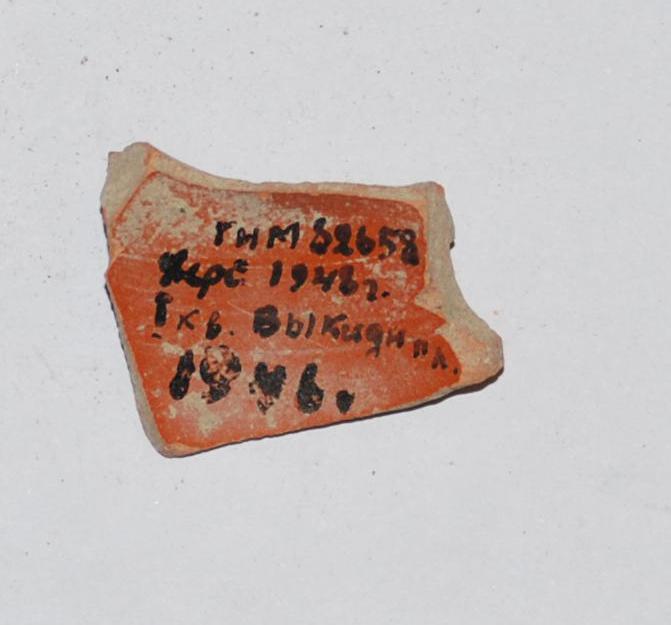 ГИМ 82658
Херс 1948 г.
I кв. Выкидн пл.